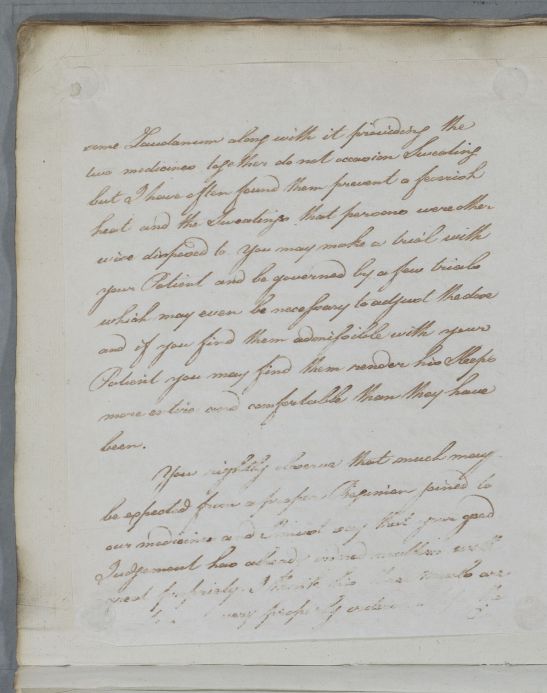 some Laudanum along with it providing the
two medicines together do not occasion Sweating
but I have often found them prevent a feverish
heat and the Sweatings that persons were other
wise disposed to. You may make a trial with
your Patient and be governed by a few trials
which may even be necessary to adjust the dose
and if you find them admissible with your
Patient you may find them render his Sleeps
more entire and comfortable than they have
been.
You rightly observe that much may
be expected from a proper Regimen joined to
our medicines and I must say that your good
Judgement has already ordered matters with
great propriety. I think his
very properly